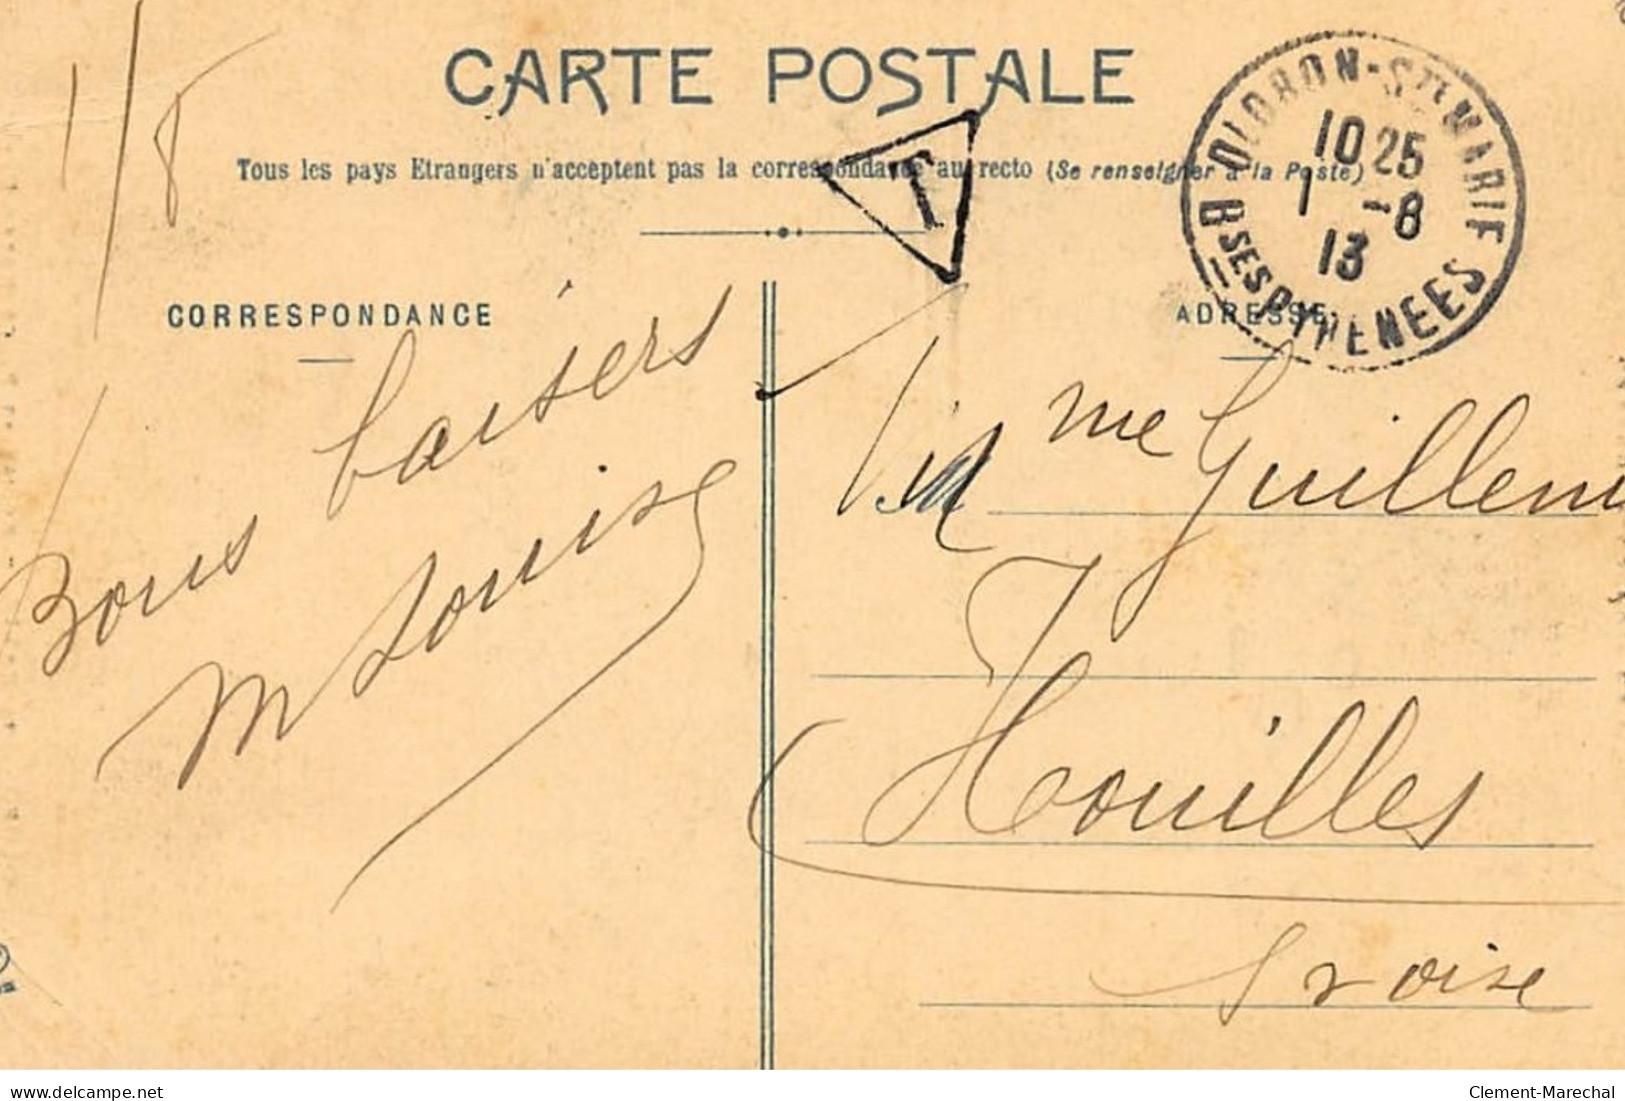 CARTE POSTALE
1/8
Tous les pays Etrangers n'acceptent pas la correspondance au recto (Se renseigner à la Poste)
T
OLORON-STE MARIE
10 25
1 -8
13
BSES PYRENEES
CORRESPONDANCE
ADRESSE
Bons baisers
M Louise
Mme Guillem
Houilles
S & Oise
delcampe.net
Clement-Marechal